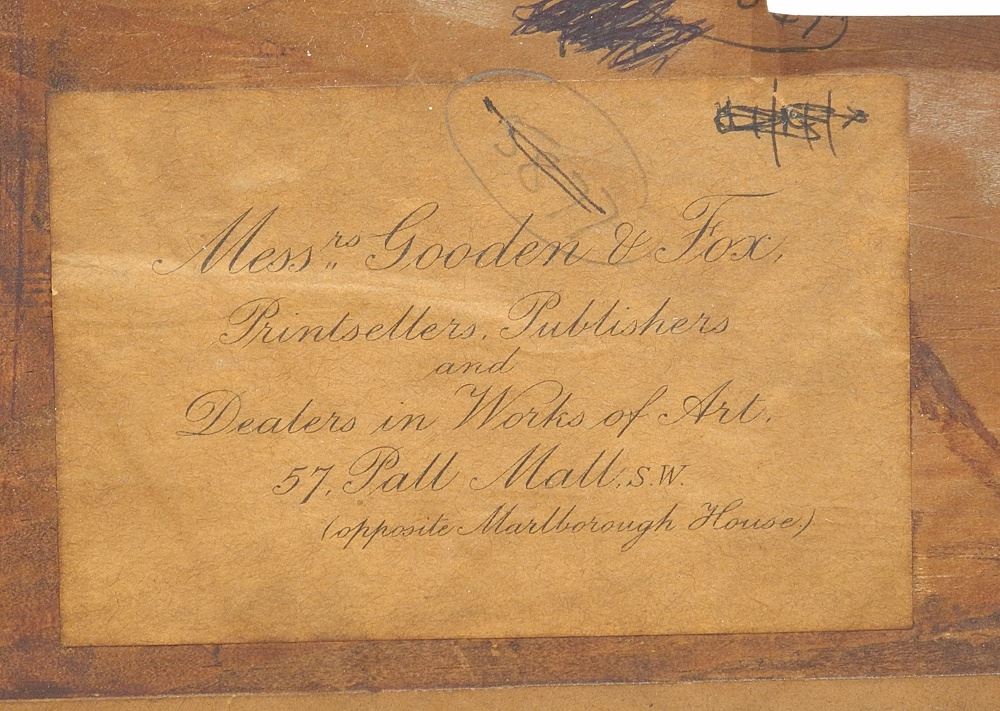 Mess.rs Gooden & Fox,
Printsellers, Publishers
and
Dealers in Works of Art.
57, Pall Mall, S.W.
(opposite Marlborough House.)